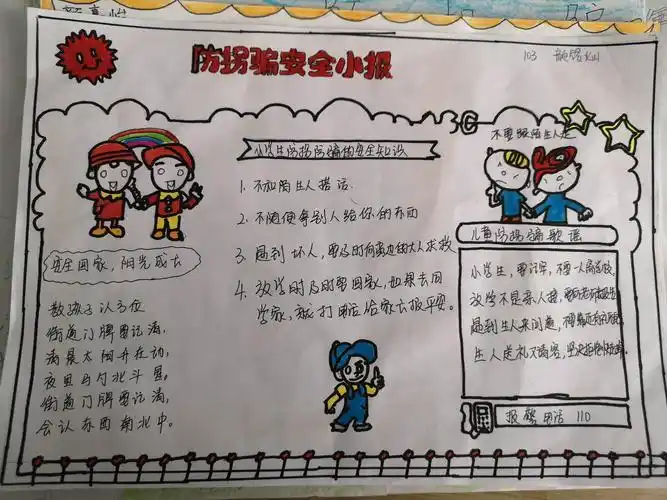 防拐骗安全小报
103
不要跟陌生人走
小学生防拐防骗的安全知识
1. 不和陌生人搭话.
2. 不随便拿别人给你的东西
3. 遇到坏人，要及时向旁边的大人求救
4. 放学时及时要回家，如果去同
学家，就打电话给家长报平安。
安全回家，阳光成长
教孩子认方位
街道门牌要记清，
清晨太阳升在动，
夜里勺北斗星，
街道门牌要记清，
会认东西南北中。
儿童防拐骗歌谣
小学生，要记牢，不要一人
放学不是亲人接，
遇到生人来问道，
生人送礼又请客，坚决
报警电话 110